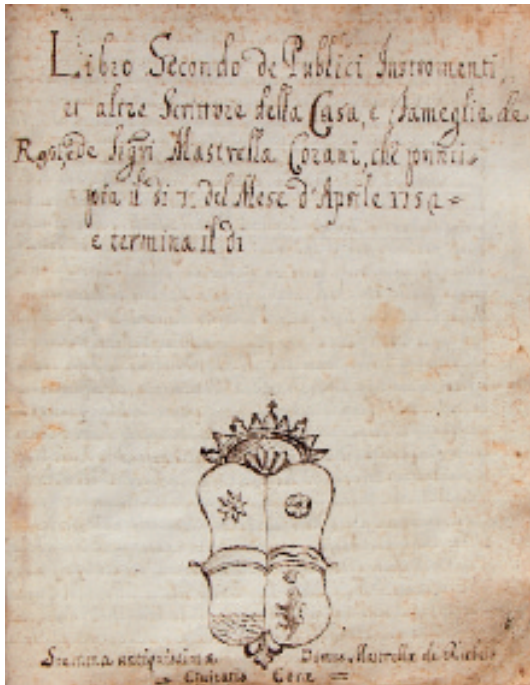 Libro Secondo de Publici Instromenti,
et altre Scritture della Casa, e Fameglia de
de Sigri Mastrella Corani, che princi=
pia il di 7 del Mese d'Aprile 1754 =
e termina il di
Stemma antiquissima Domus Mastrellæ de
Civitatis Coræ =